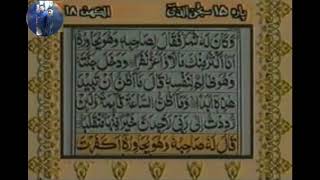 پارہ ۱۵ سبحن الذی
الکھف ۱۸
وَّكَانَ لَهٗ ثَمَرٌ فَقَالَ لِصَاحِبِهٖ وَهُوَ يُحَاوِرُهٗٓ
اَنَا اَكْثَرُ مِنْكَ مَالًا وَّاَعَزُّ نَفَرًا وَدَخَلَ جَنَّتَهٗ
وَهُوَ ظَالِمٌ لِّنَفْسِهٖ قَالَ مَآ اَظُنُّ اَنْ تَبِيْدَ
هٰذِهٖٓ اَبَدًا وَّمَآ اَظُنُّ السَّاعَةَ قَآئِمَةً وَّلَئِنْ
رُّدِدْتُّ اِلٰى رَبِّيْ لَاَجِدَنَّ خَيْرًا مِّنْهَا مُنْقَلَبًا
قَالَ لَهٗ صَاحِبُهٗ وَهُوَ يُحَاوِرُهٗٓ اَكَفَرْتَ